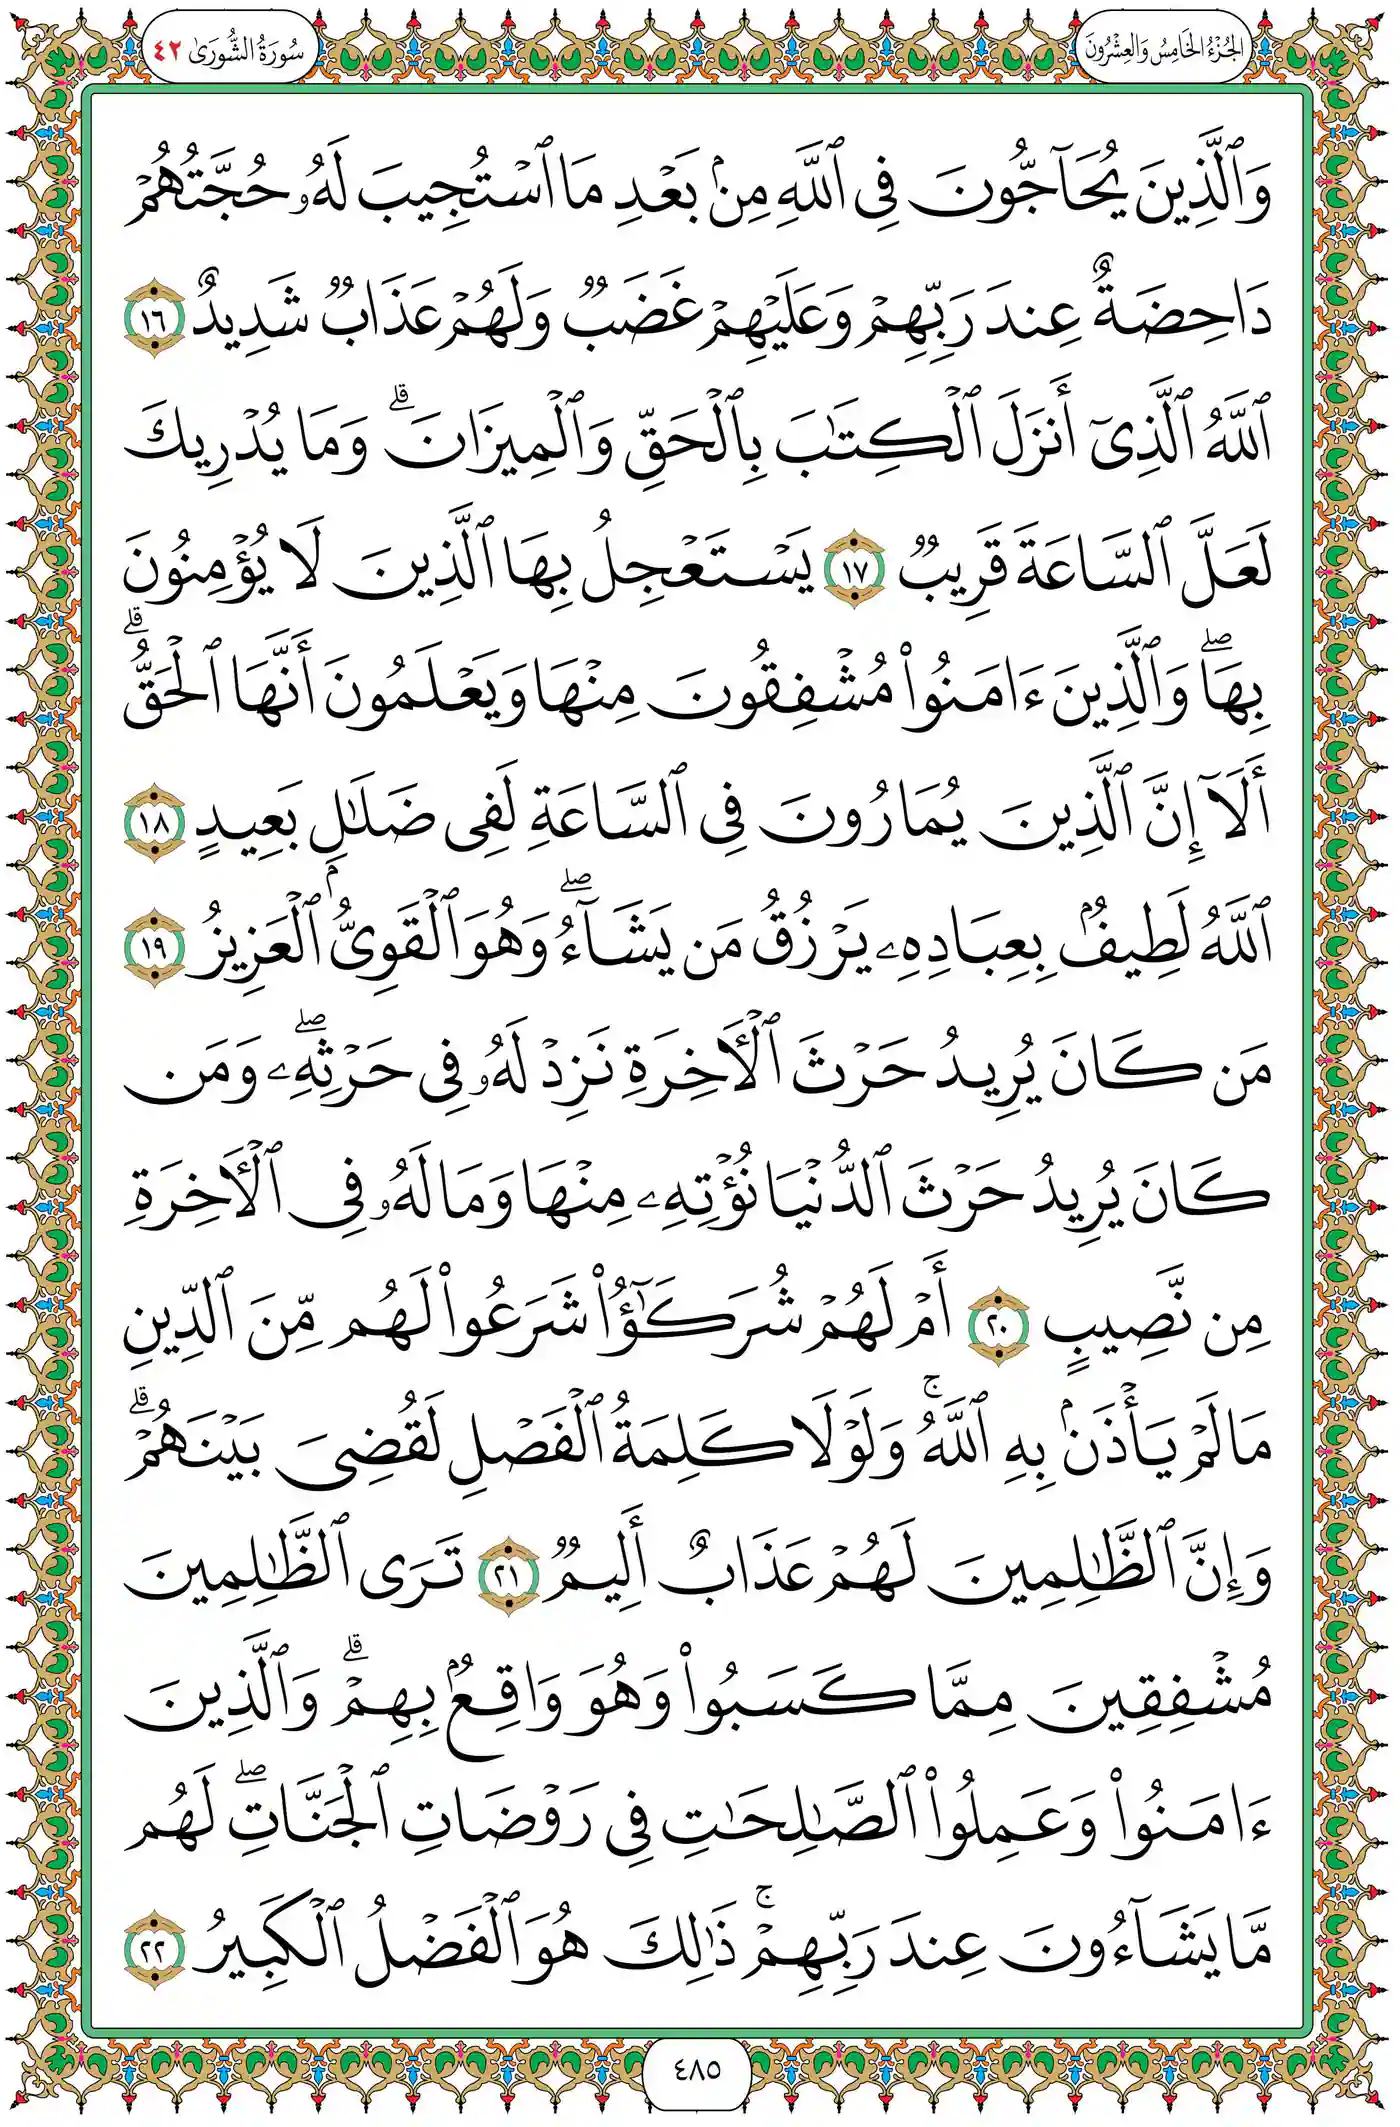 الجُزْءُ الخَامِسُ وَالعِشْرُونَ
سُورَةُ الشُّورَىٰ ٤٢
وَٱلَّذِينَ يُحَآجُّونَ فِى ٱللَّهِ مِنۢ بَعْدِ مَا ٱسْتُجِيبَ لَهُۥ حُجَّتُهُمْ
دَاحِضَةٌ عِندَ رَبِّهِمْ وَعَلَيْهِمْ غَضَبٌ وَلَهُمْ عَذَابٌ شَدِيدٌ ١٦
ٱللَّهُ ٱلَّذِىٓ أَنزَلَ ٱلْكِتَـٰبَ بِٱلْحَقِّ وَٱلْمِيزَانَ ۗ وَمَا يُدْرِيكَ
لَعَلَّ ٱلسَّاعَةَ قَرِيبٌ ١٧ يَسْتَعْجِلُ بِهَا ٱلَّذِينَ لَا يُؤْمِنُونَ
بِهَا ۖ وَٱلَّذِينَ ءَامَنُوا۟ مُشْفِقُونَ مِنْهَا وَيَعْلَمُونَ أَنَّهَا ٱلْحَقُّ ۗ
أَلَآ إِنَّ ٱلَّذِينَ يُمَارُونَ فِى ٱلسَّاعَةِ لَفِى ضَلَـٰلٍۭ بَعِيدٍ ١٨
ٱللَّهُ لَطِيفٌۢ بِعِبَادِهِۦ يَرْزُقُ مَن يَشَآءُ ۖ وَهُوَ ٱلْقَوِىُّ ٱلْعَزِيزُ ١٩
مَن كَانَ يُرِيدُ حَرْثَ ٱلْـَٔاخِرَةِ نَزِدْ لَهُۥ فِى حَرْثِهِۦ ۖ وَمَن
كَانَ يُرِيدُ حَرْثَ ٱلدُّنْيَا نُؤْتِهِۦ مِنْهَا وَمَا لَهُۥ فِى ٱلْـَٔاخِرَةِ
مِن نَّصِيبٍ ٢٠ أَمْ لَهُمْ شُرَكَـٰٓؤُا۟ شَرَعُوا۟ لَهُم مِّنَ ٱلدِّينِ
مَا لَمْ يَأْذَنۢ بِهِ ٱللَّهُ ۚ وَلَوْلَا كَلِمَةُ ٱلْفَصْلِ لَقُضِىَ بَيْنَهُمْ ۗ
وَإِنَّ ٱلظَّـٰلِمِينَ لَهُمْ عَذَابٌ أَلِيمٌ ٢١ تَرَى ٱلظَّـٰلِمِينَ
مُشْفِقِينَ مِمَّا كَسَبُوا۟ وَهُوَ وَاقِعٌۢ بِهِمْ ۗ وَٱلَّذِينَ
ءَامَنُوا۟ وَعَمِلُوا۟ ٱلصَّـٰلِحَـٰتِ فِى رَوْضَاتِ ٱلْجَنَّاتِ ۖ لَهُم
مَّا يَشَآءُونَ عِندَ رَبِّهِمْ ۚ ذَٰلِكَ هُوَ ٱلْفَضْلُ ٱلْكَبِيرُ ٢٢
٤٨٥